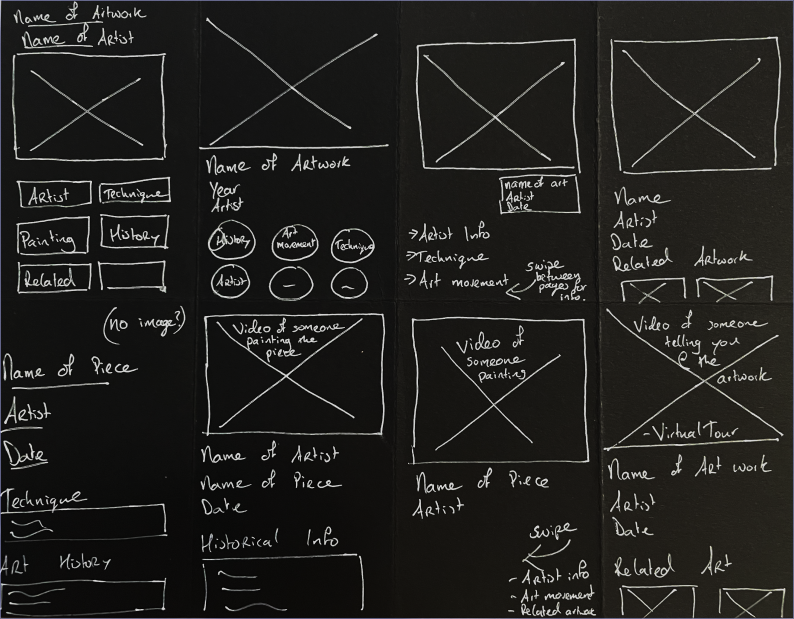 Name of Artwork
Name of Artist
Artist
Technique
Painting
History
Related
Name of Artwork
Year
Artist
History
Art
movement
Technique
Artist
name of art
Artist
Date
→Artist Info
→Technique
→Art movement
swipe
between
pages for
info.
Name
Artist
Date
Related Artwork
(no image?)
Name of Piece
Artist
Date
Technique
Art History
Video of someone
Painting the
piece
Name of Artist
Name of Piece
Date
Historical Info
Video of
someone
painting
Name of Piece
Artist
swipe
- Artist info
- Art movement
- Related artwork
Video of someone
telling you
the
artwork
- Virtual Tour
Name of Art work
Artist
Date
Related Art